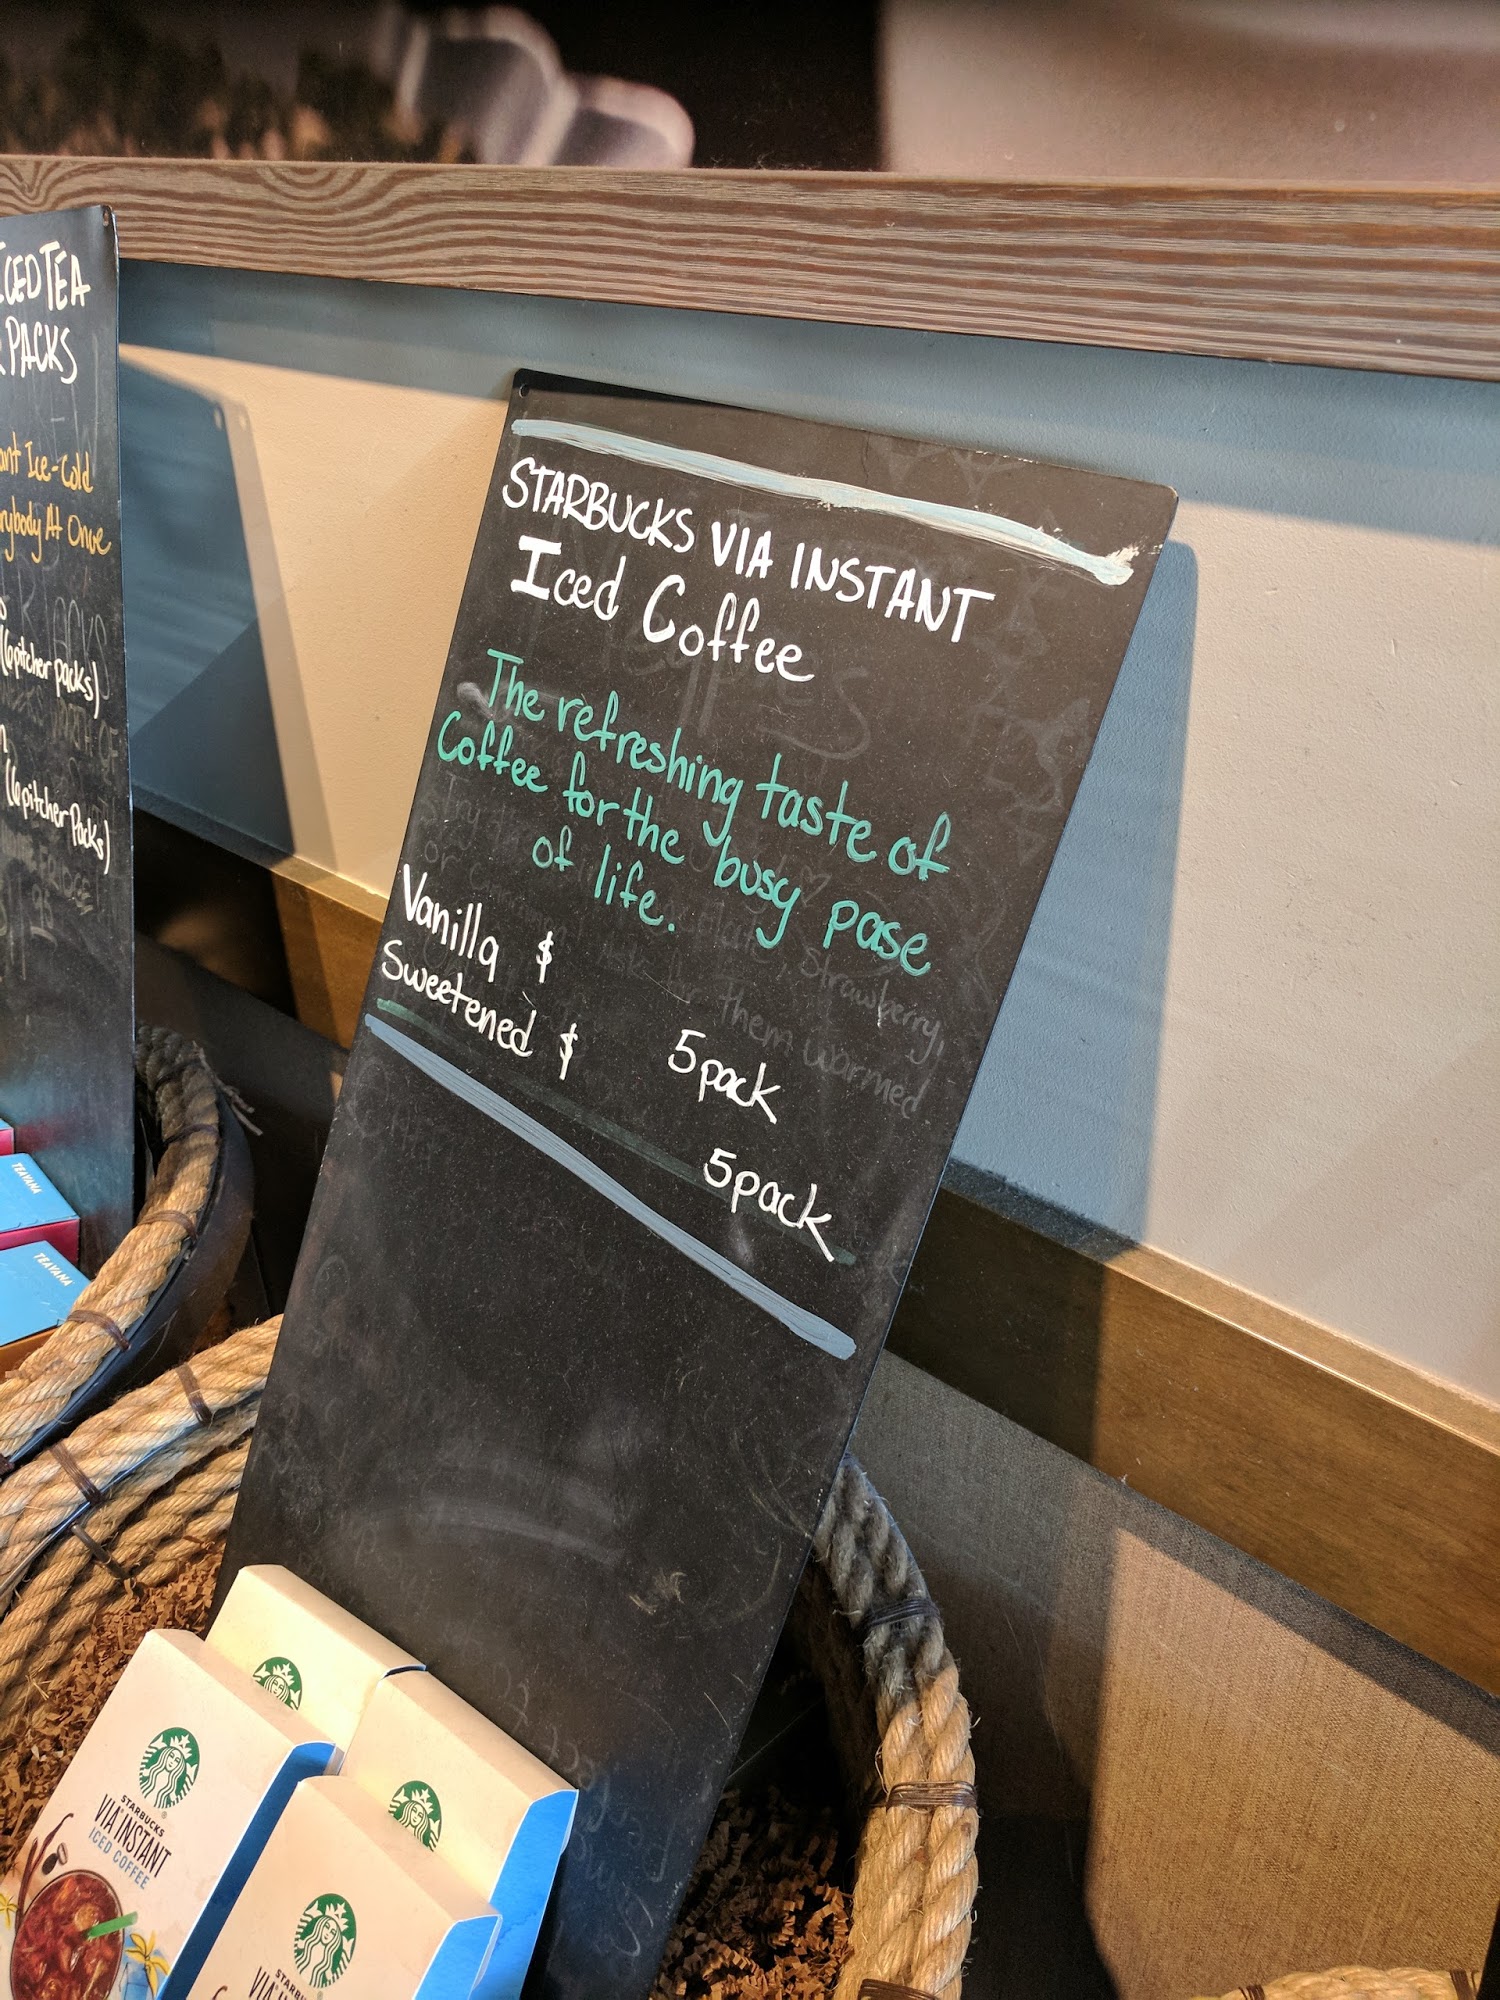 ICED TEA
PACKS
Ice-Cold
At Once
(6 pitcher packs)
(6 pitcher Packs)
STARBUCKS VIA INSTANT
Iced Coffee
The refreshing taste of
Coffee for the busy pase
of life.
Vanilla $ 5 pack
Sweetened $ 5 pack
Strawberry,
them warmed
TEAVANA
TEAVANA
STARBUCKS
VIA INSTANT
ICED COFFEE
STARBUCKS